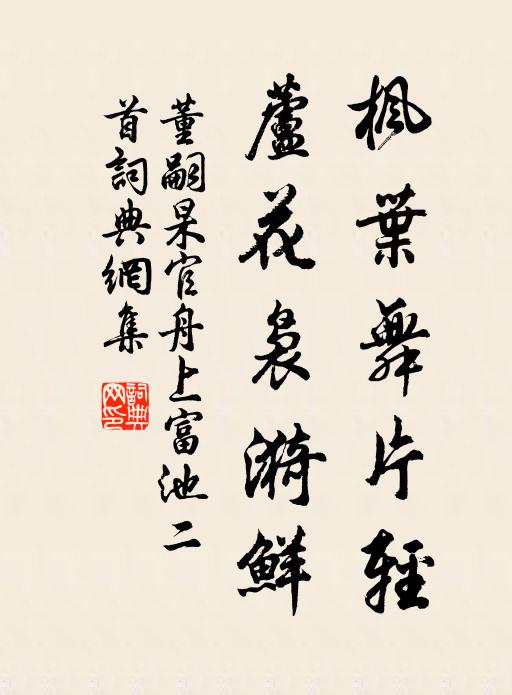 楓葉舞片輕
蘆花裊漪鮮
董嗣杲官舟上富池二
首詞典網集
詞典
网印